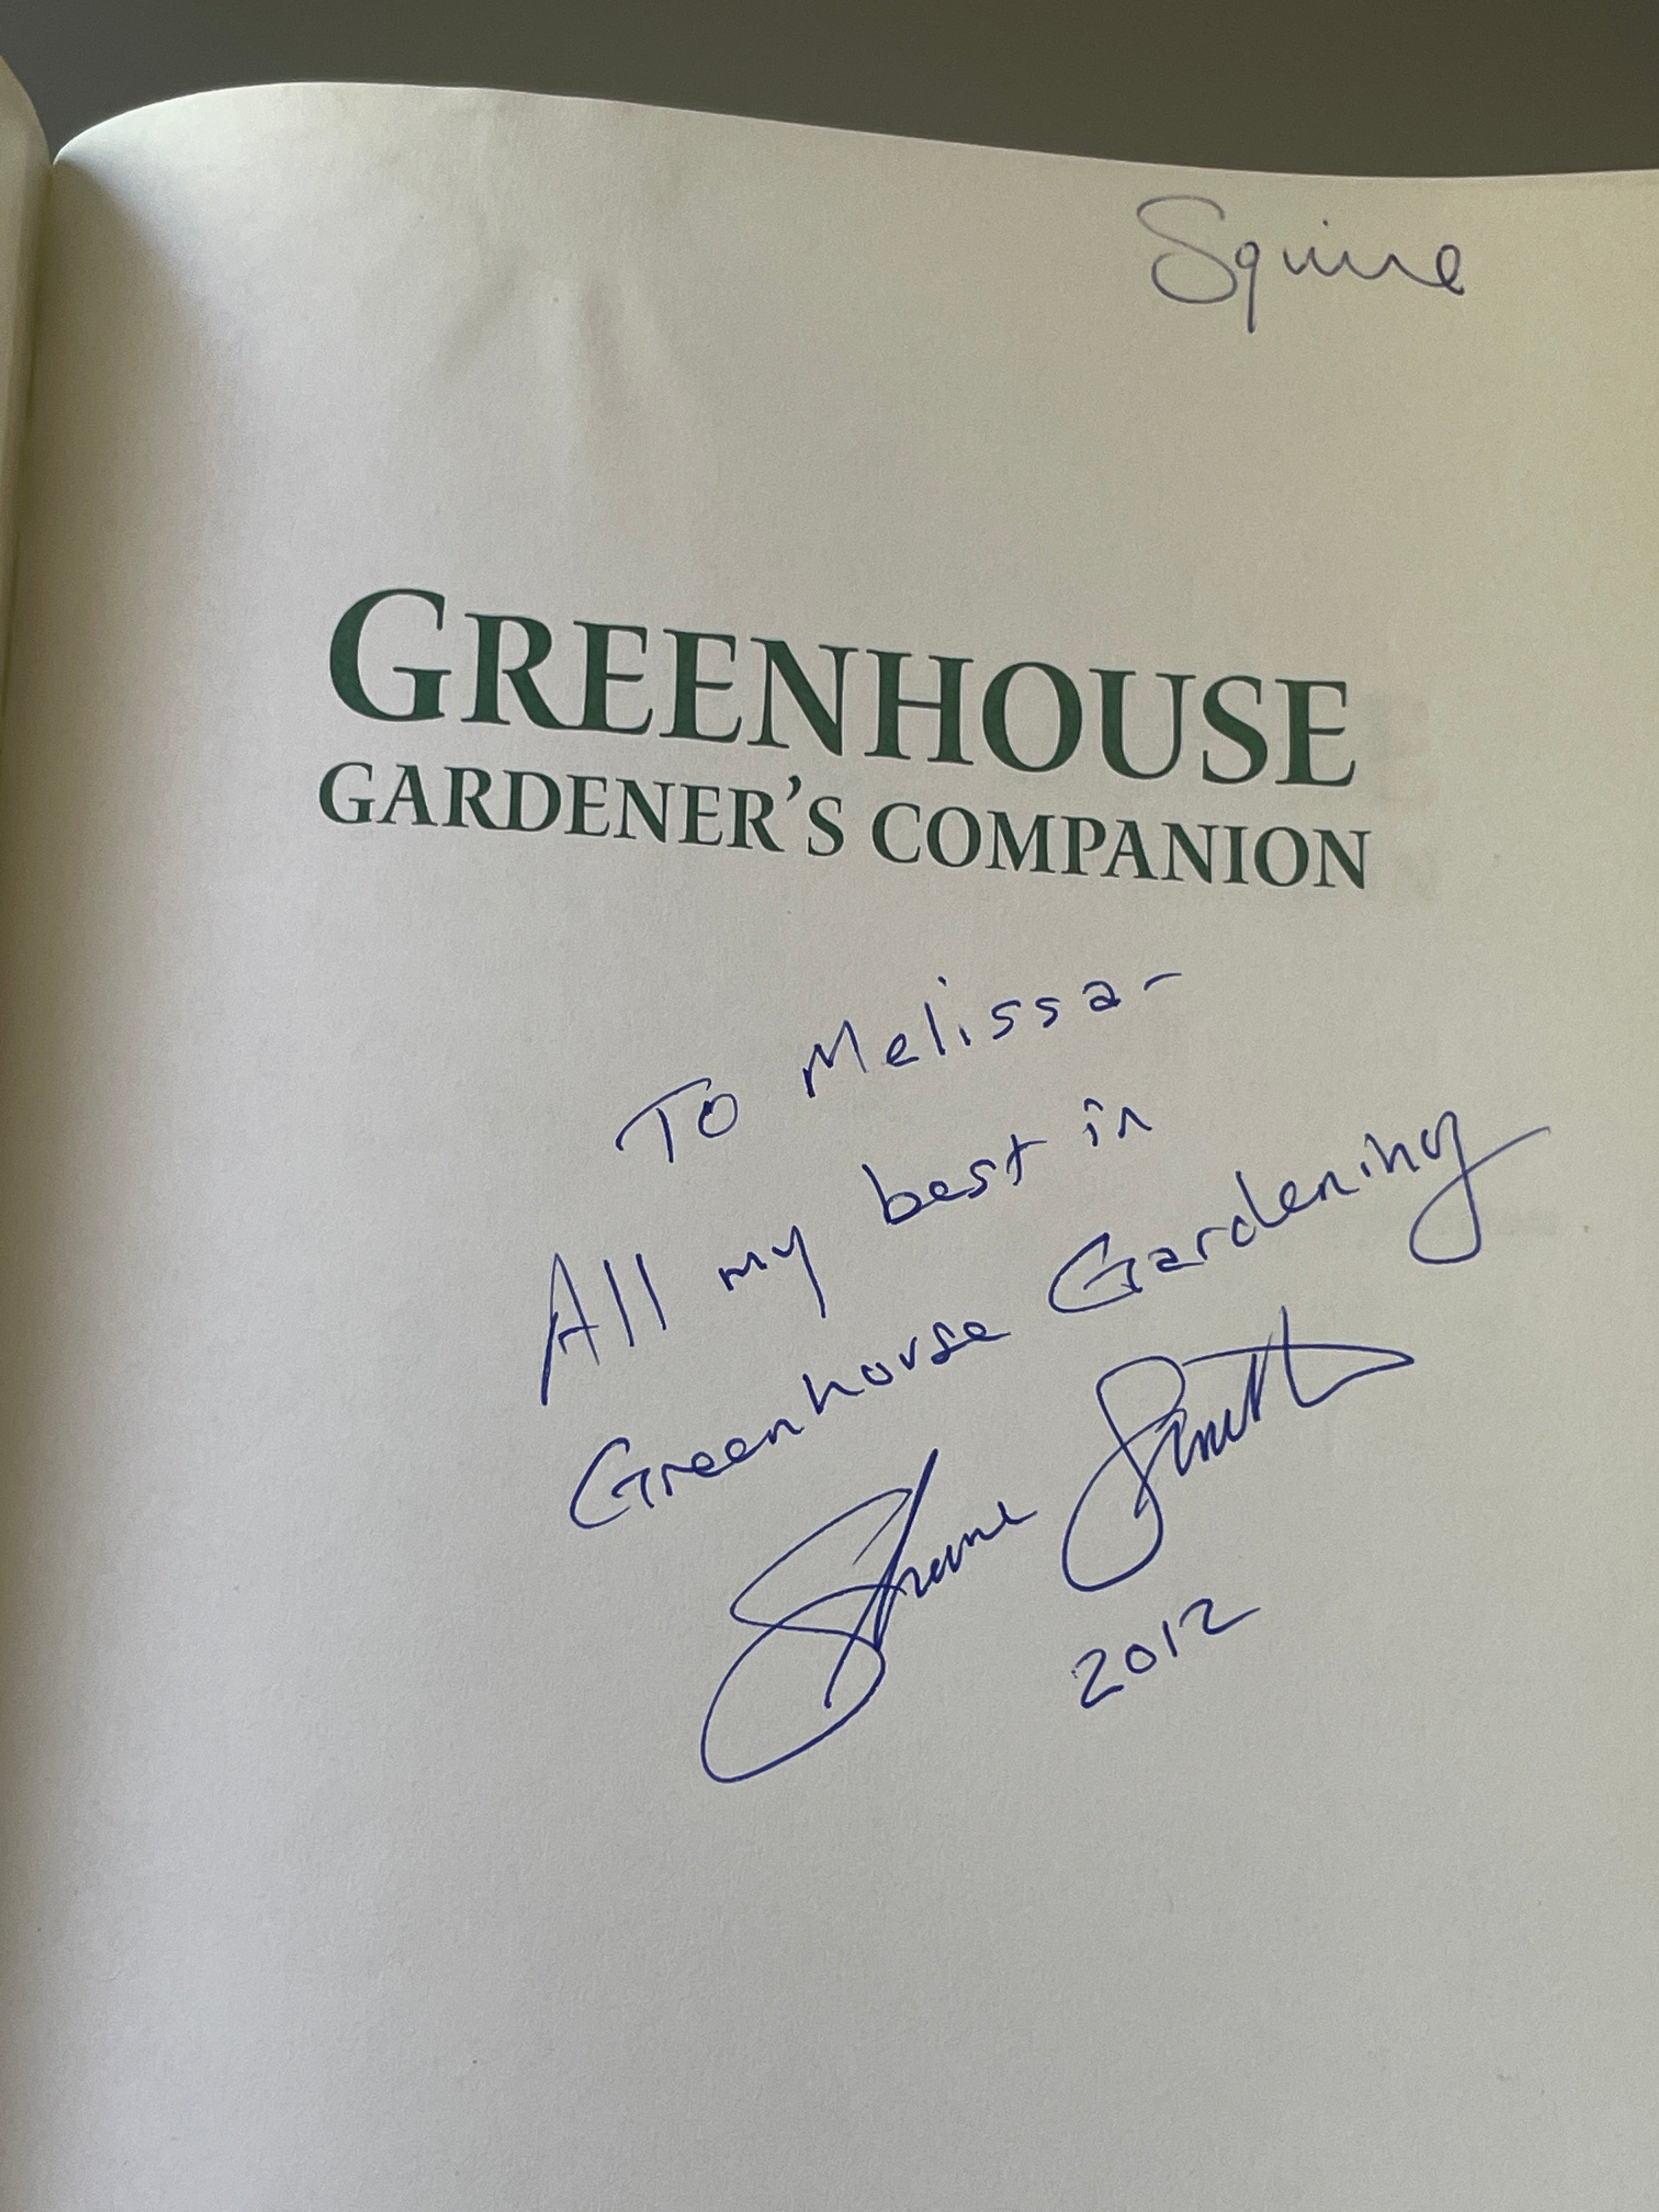 Squire
GREENHOUSE
GARDENER'S COMPANION
To Melissa-
All my best in
Greenhouse Gardening
Shane Smith
2012